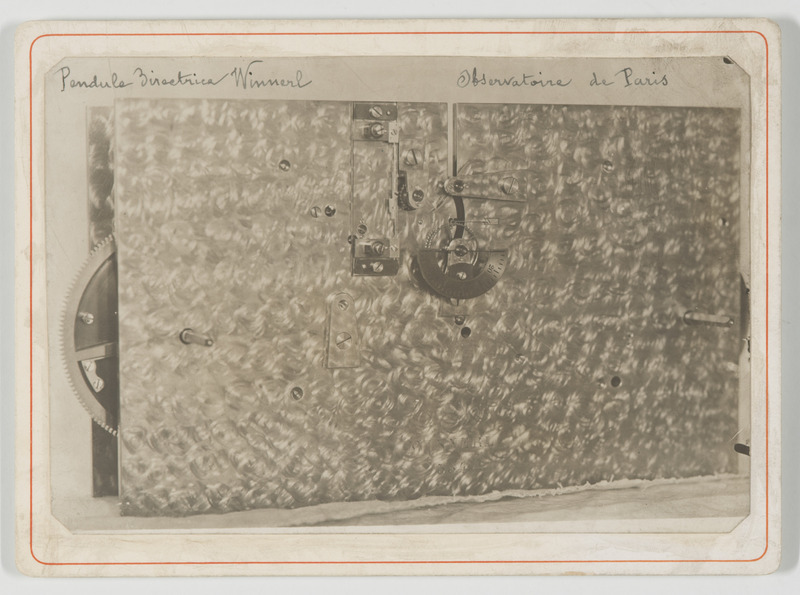 Pendule Directrice Winnerl
Observatoire de Paris